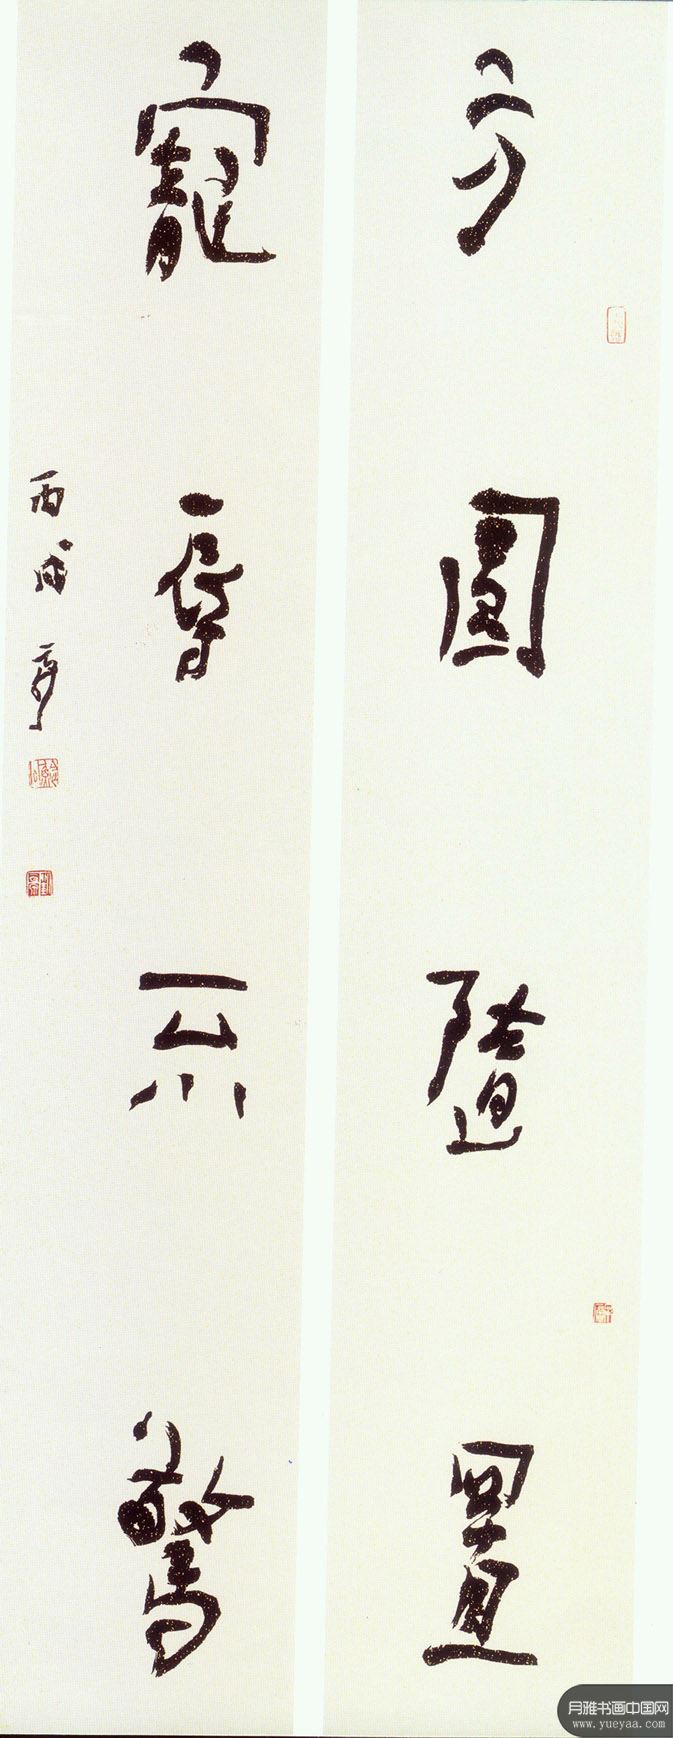 方圆随置
宠辱不惊
丙戌
月雅书画中国网
www.yueyaa.com